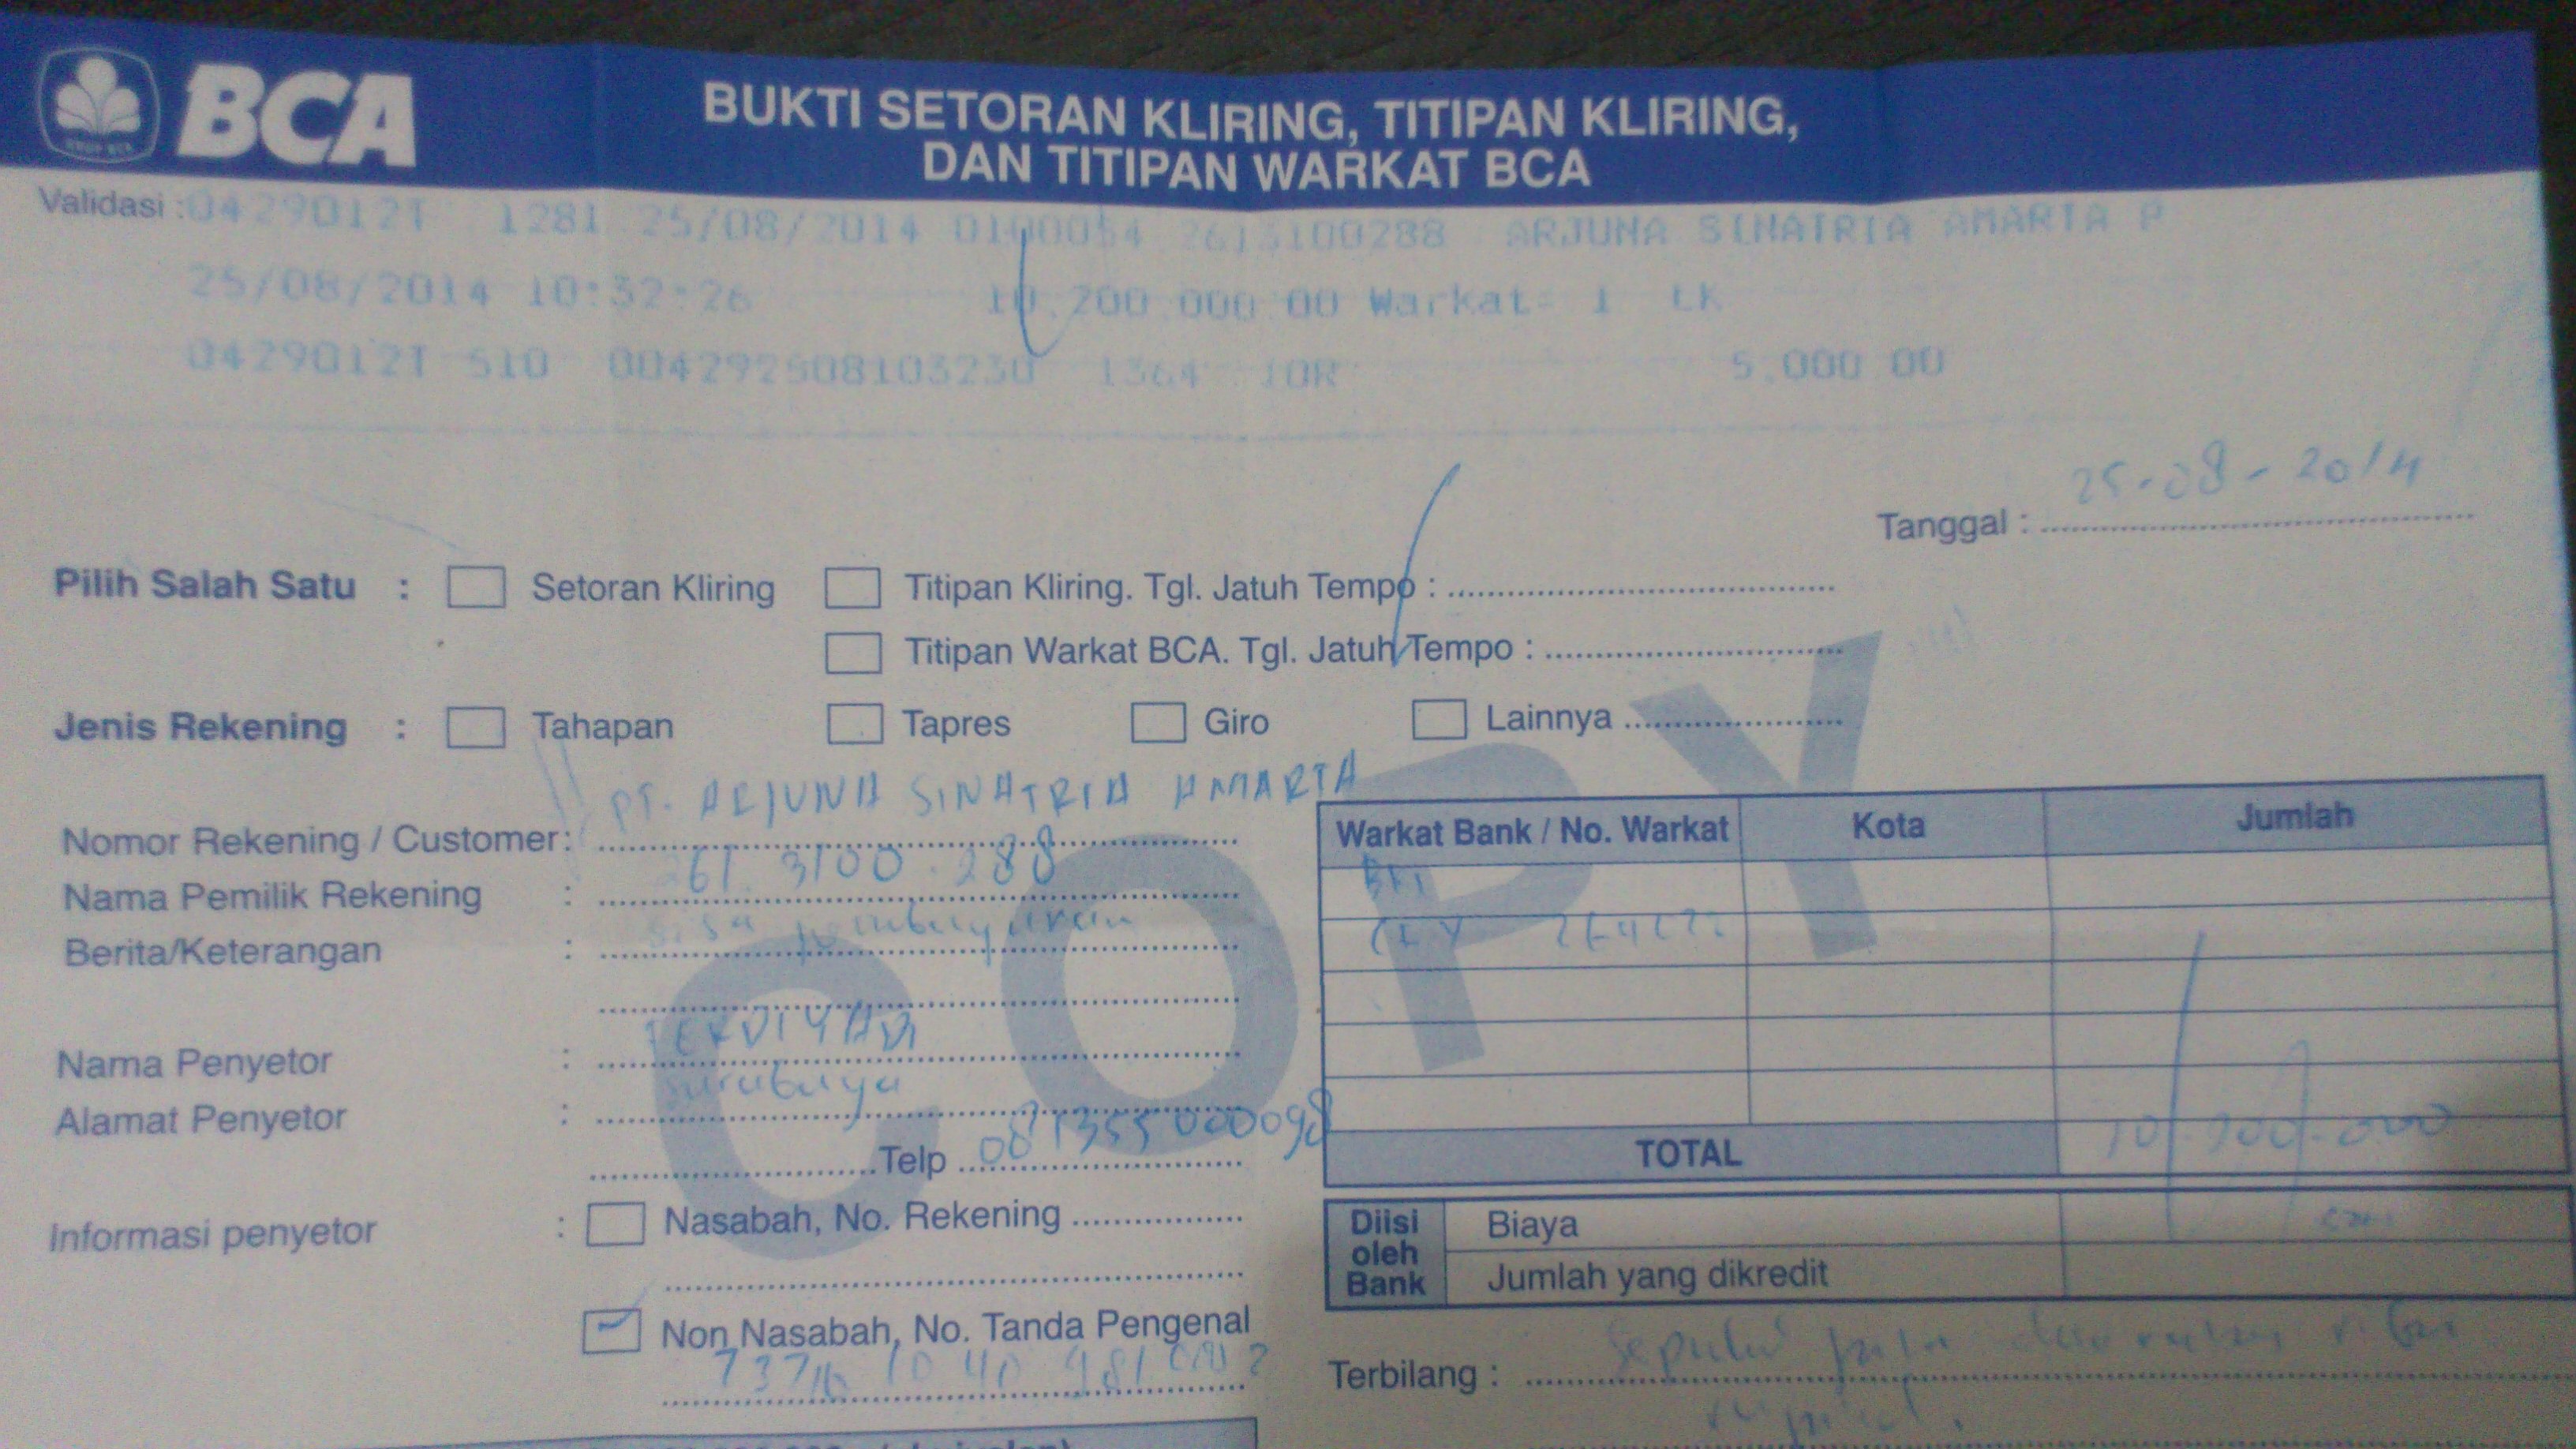 BCA
BUKTI SETORAN KLIRING, TITIPAN KLIRING,
DAN TITIPAN WARKAT BCA
Validasi : 0429012T 1281 25/08/2014 0100054 2613100288 ARJUNA SINATRIA AMARTA P
25/08/2014 10:32:26 10.200.000.00 Warkat= 1 LK
0429012T 510 004292508103230 1364 IDR 5.000 00
Tanggal : 25-08-2014
Pilih Salah Satu : Setoran Kliring Titipan Kliring. Tgl. Jatuh Tempo :
Titipan Warkat BCA. Tgl. Jatuh Tempo :
Jenis Rekening : Tahapan Tapres Giro Lainnya
COPY
PT. ARJUNA SINATRIA AMARTA
Nomor Rekening / Customer :
261 3100 288
Nama Pemilik Rekening :
sisa pembayaran
Berita/Keterangan :
Nama Penyetor :
Surabaya
Alamat Penyetor :
Telp 081355000098
Informasi penyetor : Nasabah, No. Rekening
Non Nasabah, No. Tanda Pengenal
Warkat Bank / No. Warkat Kota Jumlah
TOTAL 10.200.000
Diisi oleh Bank
Biaya
Jumlah yang dikredit
Terbilang : Sepuluh juta dua ratus ribu
rupiah.